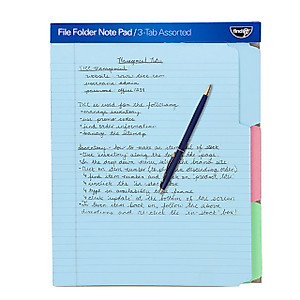 File Folder Note Pad / 3-Tab Assorted
find It
Management Tabs
TICC Management
website
username: admin
password: office
TICC is used for the following:
• manage inventory
• use promo codes
• find order information
• manage the sitemap
Inventory - how to make an item out of stock
• Click inventory along the top of the page
• In the drop down menu, select the
• Click on item number (to put in descending order)
• find item number and click on product title
• uncheck the in stock box
• type in availability
• click 'update' at the bottom of the screen
• When item back in, follow the above
directions and re-click the 'in stock box'!